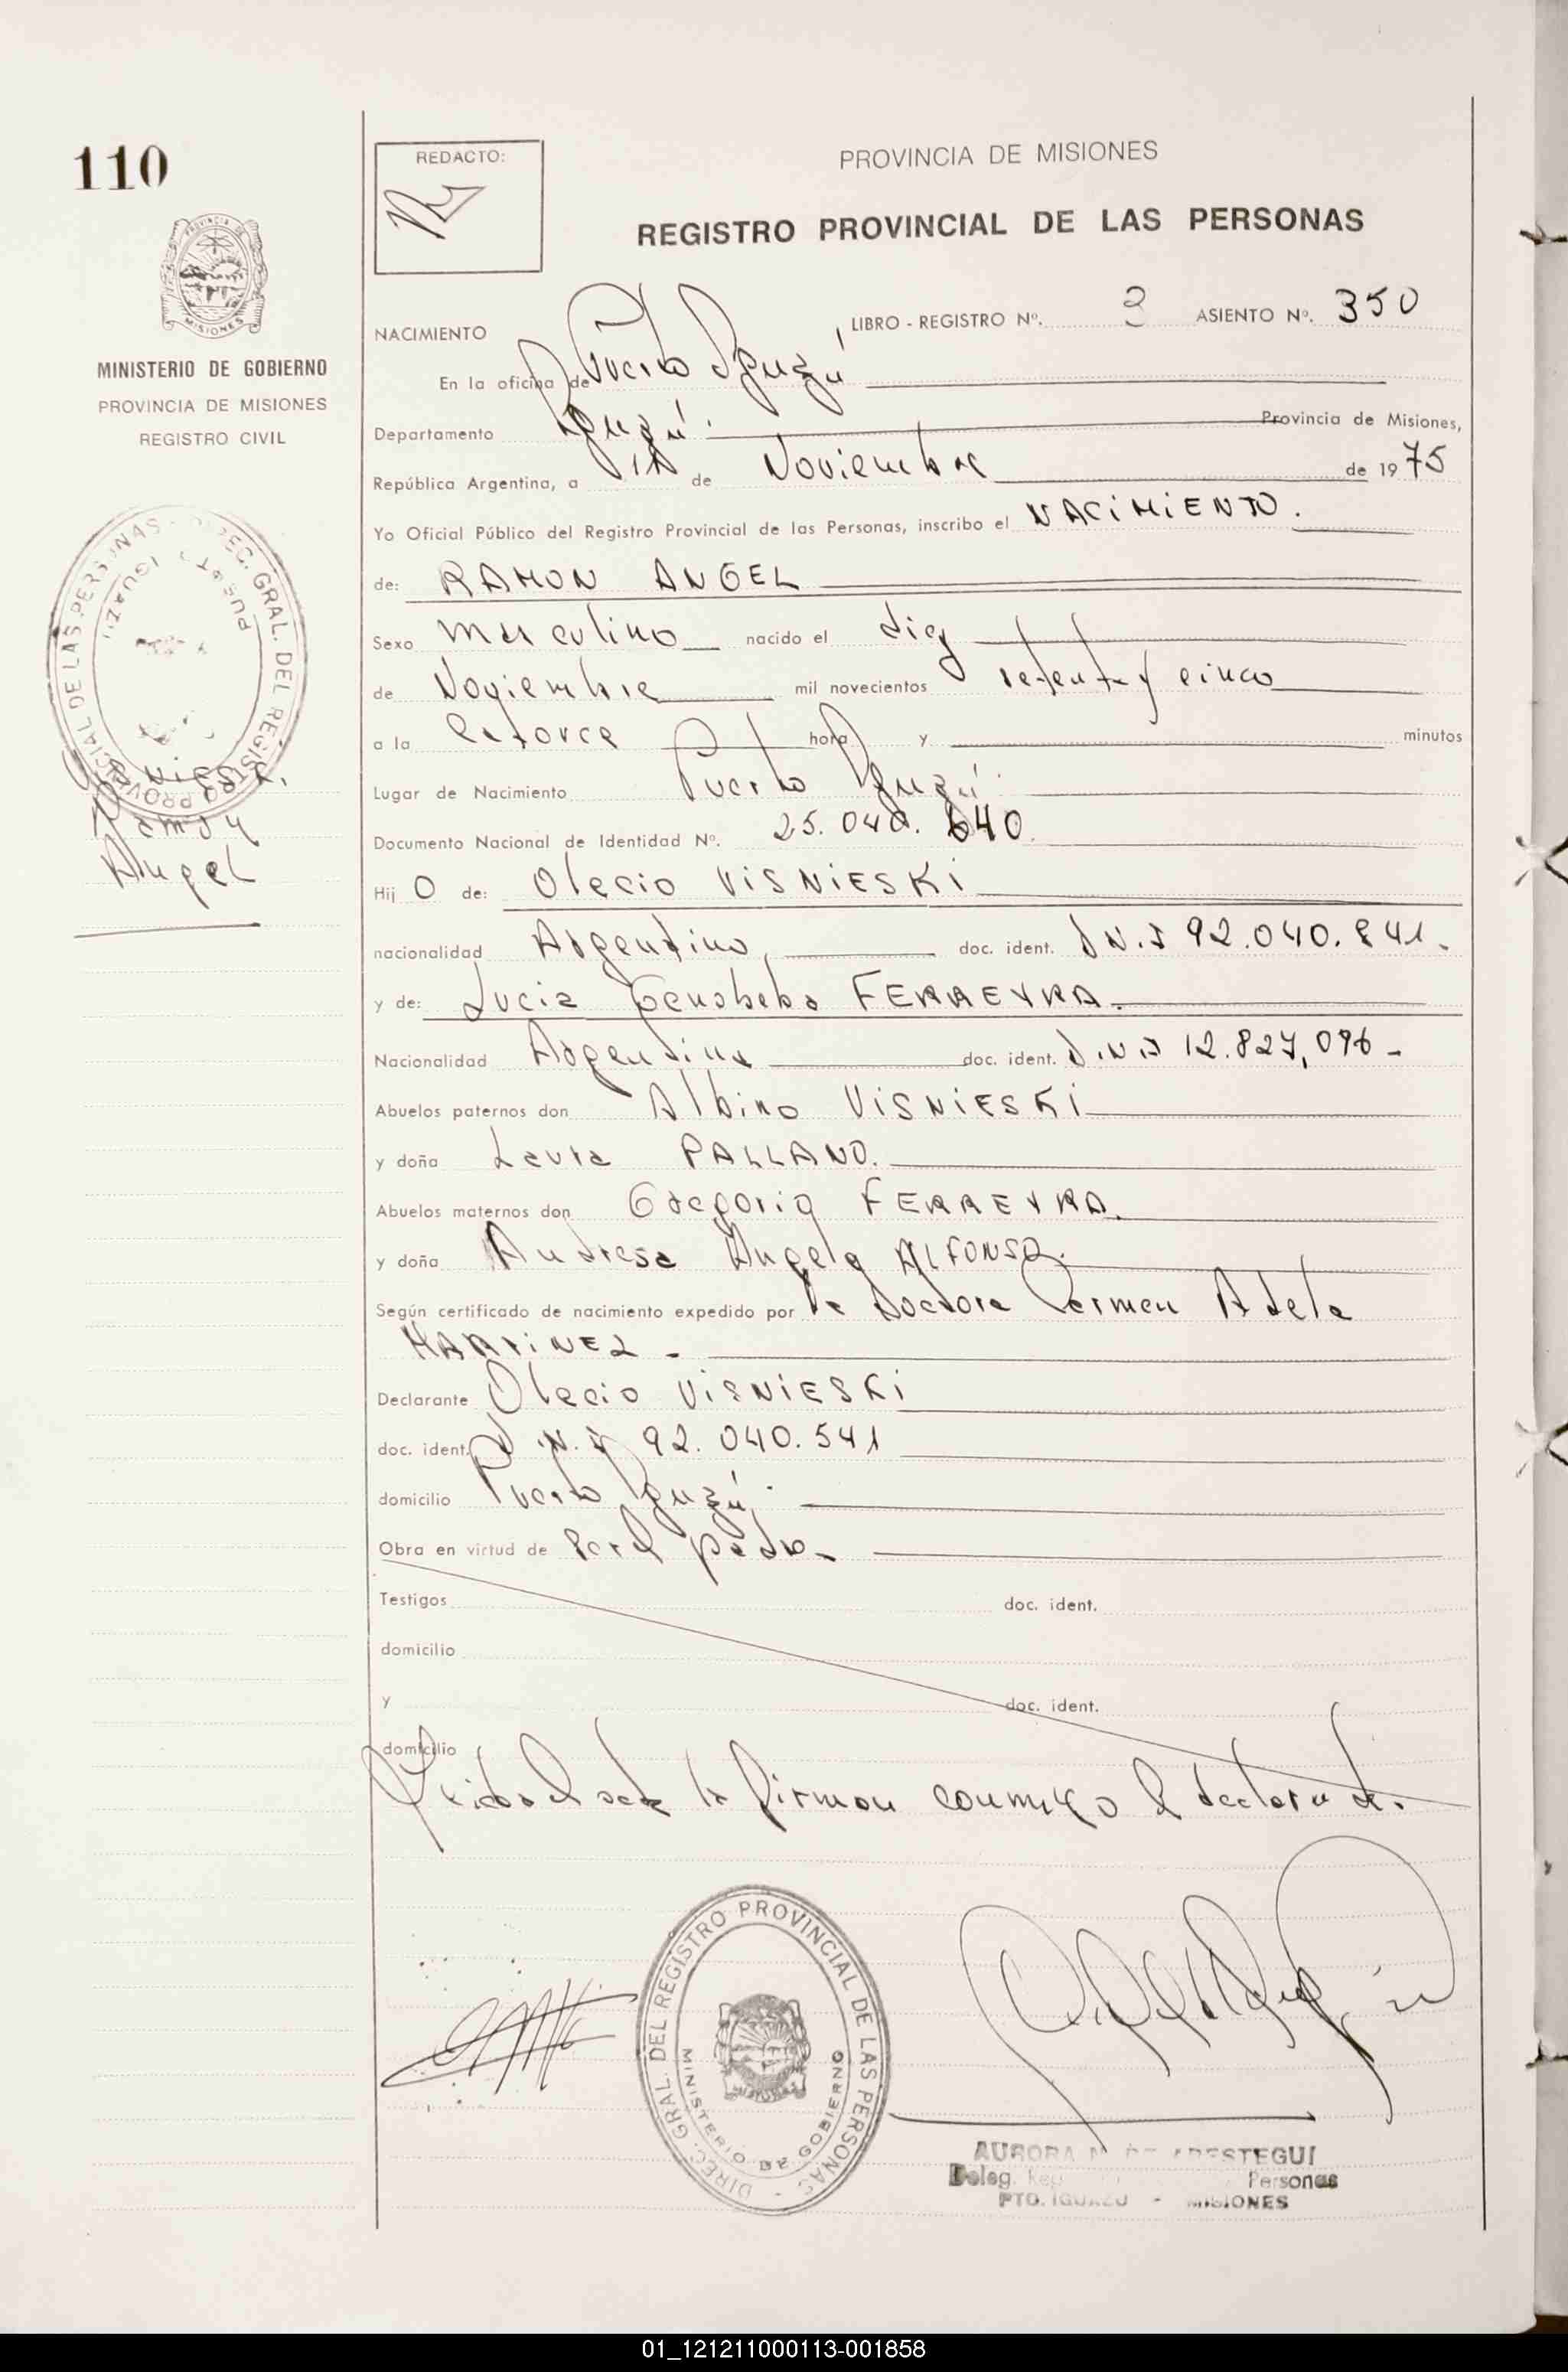 110
REDACTO:
PROVINCIA DE MISIONES
REGISTRO PROVINCIAL DE LAS PERSONAS
PROVINCIA DE
MISIONES
MINISTERIO DE GOBIERNO
PROVINCIA DE MISIONES
REGISTRO CIVIL
NACIMIENTO LIBRO - REGISTRO Nº. 3 ASIENTO Nº. 350
En la oficina de Puerto Iguazú
Departamento Iguazú. Provincia de Misiones,
República Argentina, a de Noviembre de 1975
Yo Oficial Público del Registro Provincial de las Personas, inscribo el NACIMIENTO.
de: RAMON ANGEL
Sexo masculino nacido el diez
de Noviembre mil novecientos setenta y cinco
a la catorce hora y minutos
Lugar de Nacimiento Puerto Iguazú.
Documento Nacional de Identidad Nº. 25.040. 640
Hij o de: Olecio VISNIESKI
nacionalidad Argentino, doc. ident. D.N.I 92.040.841.
y de: Lucia FERREYRA.
Nacionalidad Argentina doc. ident. D.N.I 12.827,096 -
Abuelos paternos don Albino VISNIESKI
y doña Laura PALLANO.
Abuelos maternos don Gregorio FERREYRA.
y doña Andresa Angela ALFONSO.
Según certificado de nacimiento expedido por la Doctora Carmen Adela
MARTINEZ -
Declarante Olecio VISNIESKI
doc. ident. D.N.I 92.040.541
domicilio Puerto Iguazú.
Obra en virtud de Ser el padre -
Testigos doc. ident.
domicilio
y doc. ident.
domicilio
Leida el acta la firman conmigo el declarante.
DIREC. GRAL. DEL REGISTRO PROVINCIAL DE LAS PERSONAS
PUERTO IGUAZU
VISNIESKI,
Ramon
Angel
DIREC. GRAL. DEL REGISTRO PROVINCIAL DE LAS PERSONAS
MINISTERIO DE GOBIERNO
AURORA
Deleg. Personas
PTO. IGUAZU - MISIONES
01_121211000113-001858